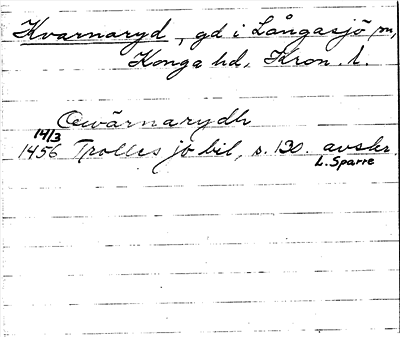 Kvarnaryd, gd i Långasjö sn,
Konga hd, Kron. l.
Qwärnarydh
14/3
1456 Trolles jb bil, s. 130. avskr.
L. Sparre